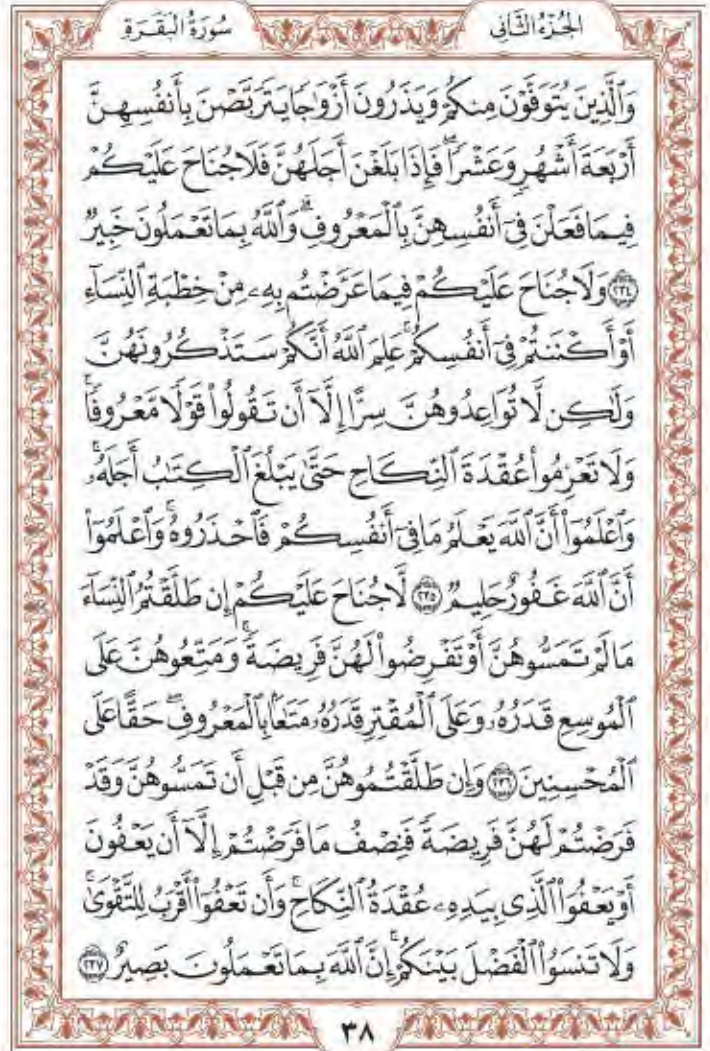 الجُزْءُ الثَّانِى سُورَةُ الْبَقَرَةِ
وَٱلَّذِينَ يُتَوَفَّوْنَ مِنكُمْ وَيَذَرُونَ أَزْوَٰجًا يَتَرَبَّصْنَ بِأَنفُسِهِنَّ
أَرْبَعَةَ أَشْهُرٍ وَعَشْرًاۖ فَإِذَا بَلَغْنَ أَجَلَهُنَّ فَلَا جُنَاحَ عَلَيْكُمْ
فِيمَا فَعَلْنَ فِىٓ أَنفُسِهِنَّ بِٱلْمَعْرُوفِۗ وَٱللَّهُ بِمَا تَعْمَلُونَ خَبِيرٌ
٢٣٤ وَلَا جُنَاحَ عَلَيْكُمْ فِيمَا عَرَّضْتُم بِهِۦ مِنْ خِطْبَةِ ٱلنِّسَآءِ
أَوْ أَكْنَنتُمْ فِىٓ أَنفُسِكُمْۚ عَلِمَ ٱللَّهُ أَنَّكُمْ سَتَذْكُرُونَهُنَّ
وَلَٰكِن لَّا تُوَاعِدُوهُنَّ سِرًّا إِلَّآ أَن تَقُولُوا۟ قَوْلًا مَّعْرُوفًاۚ
وَلَا تَعْزِمُوا۟ عُقْدَةَ ٱلنِّكَاحِ حَتَّىٰ يَبْلُغَ ٱلْكِتَٰبُ أَجَلَهُۥۚ
وَٱعْلَمُوٓا۟ أَنَّ ٱللَّهَ يَعْلَمُ مَا فِىٓ أَنفُسِكُمْ فَٱحْذَرُوهُۚ وَٱعْلَمُوٓا۟
أَنَّ ٱللَّهَ غَفُورٌ حَلِيمٌ ٢٣٥ لَّا جُنَاحَ عَلَيْكُمْ إِن طَلَّقْتُمُ ٱلنِّسَآءَ
مَا لَمْ تَمَسُّوهُنَّ أَوْ تَفْرِضُوا۟ لَهُنَّ فَرِيضَةًۚ وَمَتِّعُوهُنَّ عَلَى
ٱلْمُوسِعِ قَدَرُهُۥ وَعَلَى ٱلْمُقْتِرِ قَدَرُهُۥ مَتَٰعًۢا بِٱلْمَعْرُوفِۖ حَقًّا عَلَى
ٱلْمُحْسِنِينَ ٢٣٦ وَإِن طَلَّقْتُمُوهُنَّ مِن قَبْلِ أَن تَمَسُّوهُنَّ وَقَدْ
فَرَضْتُمْ لَهُنَّ فَرِيضَةً فَنِصْفُ مَا فَرَضْتُمْ إِلَّآ أَن يَعْفُونَ
أَوْ يَعْفُوَا۟ ٱلَّذِى بِيَدِهِۦ عُقْدَةُ ٱلنِّكَاحِۚ وَأَن تَعْفُوٓا۟ أَقْرَبُ لِلتَّقْوَىٰۚ
وَلَا تَنسَوُا۟ ٱلْفَضْلَ بَيْنَكُمْۚ إِنَّ ٱللَّهَ بِمَا تَعْمَلُونَ بَصِيرٌ ٢٣٧
٣٨